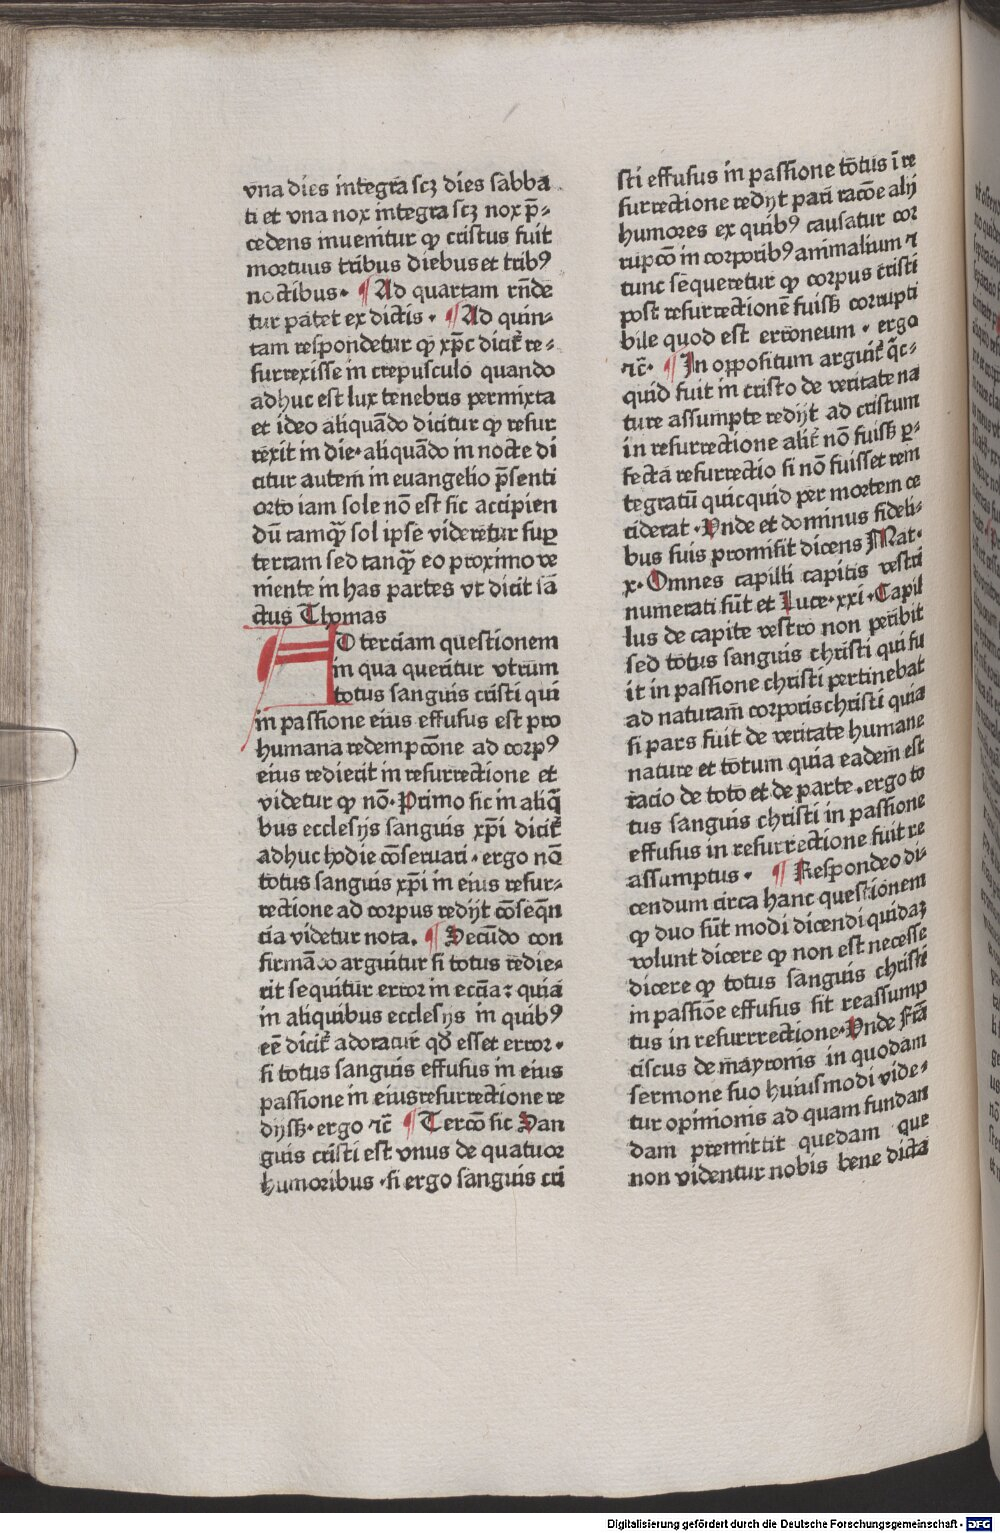 vna dies integra scꝫ dies sabba
ti et vna nox integra scꝫ nox p̄-
cedens inuenitur ꝙ cristus fuit
mortuus tribus diebus et tribꝰ
noctibus. ¶ Ad quartam rn̄de
tur patet ex dictis. ¶ Ad quin-
tam respondetur ꝙ xp̄c dicit̄ re-
surrexisse in crepusculo quando
adhuc est lux tenebris permixta
et ideo aliquādo dicitur ꝙ resur
rexit in die. aliquādo in nocte di
citur autem in euangelio p̄senti
orto iam sole nō est sic accipien
dū tamq̄ sol ipse videretur suꝑ
terram sed tanq̄ eo proximo ve
niente in has partes vt dicit sā
ctus Thomas
AD terciam questionem
in qua queritur vtrum
totus sanguis cristi qui
in passione eius effusus est pro
humana redempcōne ad corpꝰ
eius redierit in resurrectione et
videtur ꝙ nō. Primo sic in aliq̄
bus ecclesijs sanguis xp̄i dicit̄
adhuc hodie cōseruari. ergo nō
totus sanguis xp̄i in eius resur-
rectione ad corpus redijt cōseq̄n
cia videtur nota. ¶ Secūdo con
firmādo arguitur si totus redie-
rit sequitur error in eccīa: quia
in aliquibus ecclesijs in quibꝰ
eē dicit̄ adoratur qd̄ esset error.
si totus sanguis effusus in eius
passione in eius resurrectione re
dijss̄. ergo ⁊c̄ ¶ Tercō sic San
guis cristi est vnus de quatuor
humoribus. si ergo sanguis cri
sti effusus in passione totus ī re
surrectione redijt pari racōe alij
humores ex quibꝰ causatur cor
rupcō in corporibꝰ animalium ⁊
tunc sequeretur ꝙ corpus cristi
post resurrectionē fuiss̄ corrupti
bile quod est erroneum. ergo
⁊c̄. ¶ In oppositum arguit̄ q̄c-
quid fuit in cristo de veritate na
ture assumpte redijt ad cristum
in resurrectione alit̄ nō fuiss̄ ꝑ-
fecta resurrectio si nō fuisset rein
tegratū quicquid per mortem ce
ciderat. Vnde et dominus fideli-
bus suis promisit dicens Mat.
x. Omnes capilli capitis vestri
numerati sūt et Luce. xxi. Capil
lus de capite vestro non peribit
sed totus sanguis christi qui fu
it in passione christi pertinebat
ad naturam̄ corporis christi quia
si pars fuit de veritate humane
nature et totum quia eadem est
racio de toto et de parte. ergo to
tus sanguis christi in passione
effusus in resurrectione fuit re
assumptus. ¶ Respondeo di-
cendum circa hanc questionem
ꝙ duo sūt modi dicendi quidaꝫ
volunt dicere ꝙ non est necesse
dicere ꝙ totus sanguis christi
in passiōe effusus sit reassump
tus in resurrrectione. Vnde Frā
ciscus de mayronis in quodam
sermone suo huiusmodi vide-
tur opinionis ad quam fundan
dam premittit quedam que
non videntur nobis bene dicta